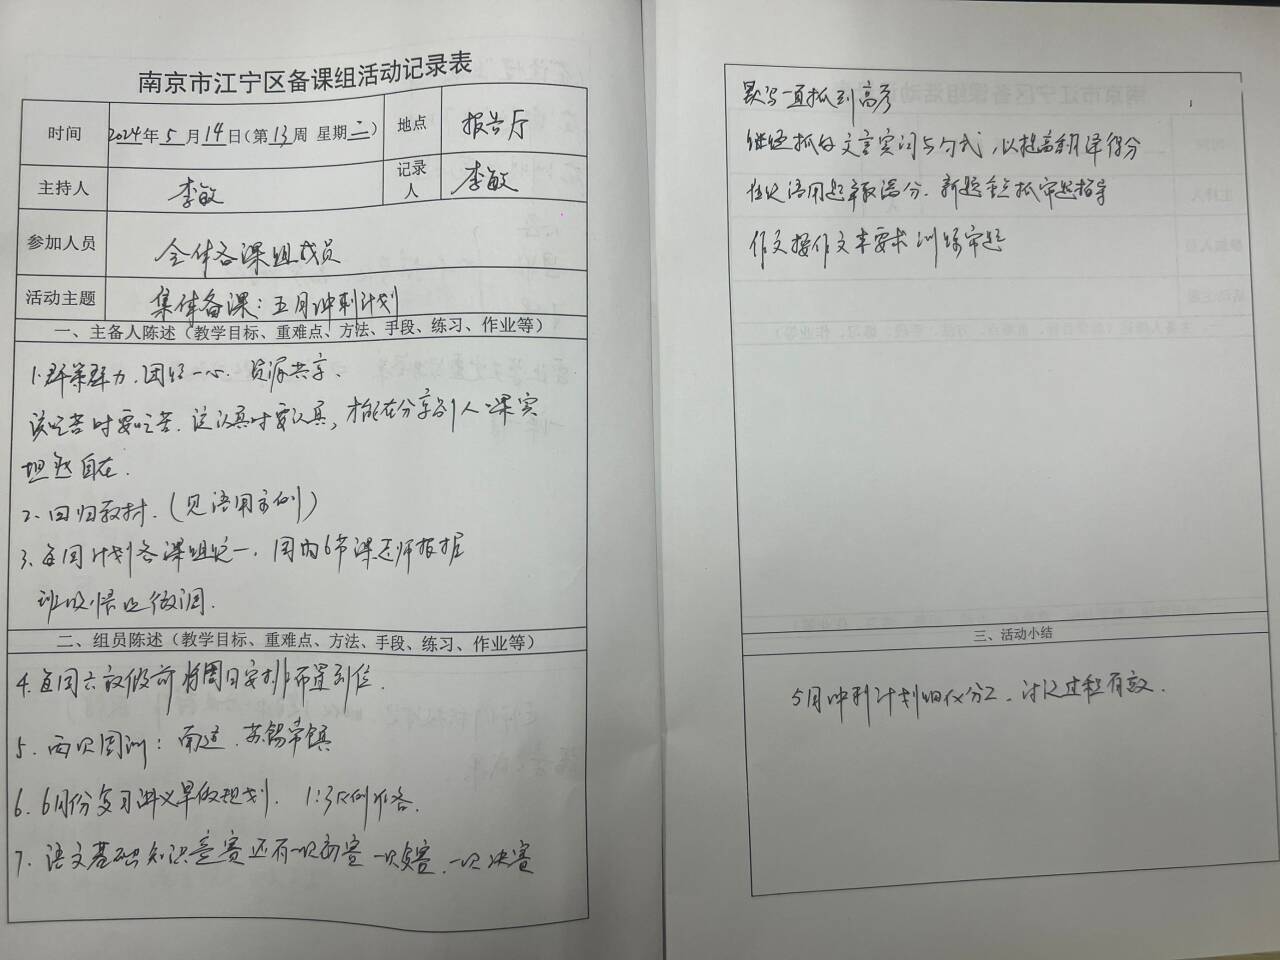 南京市江宁区备课组活动记录表
时间 2024年5月14日(第13周 星期二) 地点 报告厅
主持人 李敏 记录人 李敏
参加人员 全体备课组成员
活动主题 集体备课：五月冲刺计划
一、主备人陈述（教学目标、重难点、方法、手段、练习、作业等）
1.群策群力.团结一心.资源共享.
该吃苦时要吃苦.该认真时要认真,才能在分享别人课实
坦然自在.
2.回归教材.(见语用示例)
3.每周计划备课组统一.周内6节课老师根据
班级情况微调.
二、组员陈述（教学目标、重难点、方法、手段、练习、作业等）
4.每周六放假前将周日安排布置到位.
5.两次周测：南通.苏锡常镇
6.6月份复习讲义早做规划.
7.语文基础知识竞赛还有一次初赛 一次 一次决赛
默写一直抓到高考
继续抓好文言实词与句式,以提高翻译得分
语用题争取满分.新题重点抓审题指导
作文按作文本要求训练审题
三、活动小结
5月冲刺计划细化分工.讨论过程有效.